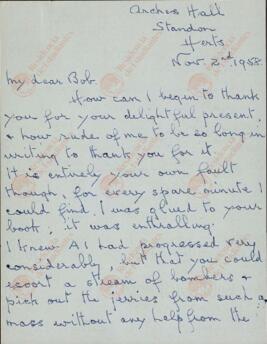 Arches Hall
Standon
Herts.
Nov. 2nd 1958.
My dear Bob.
How can I begin to thank
you for your delightful present,
& how rude of me to be so long in
writing to thank you for it
It is entirely your own fault
though, for every spare minute I
could find, I was glued to your
book, it was enthralling.
I knew A I had progressed very
considerably, but that you could
escort a stream of bombers &
pick out the jerries from such a
mass without any help from the